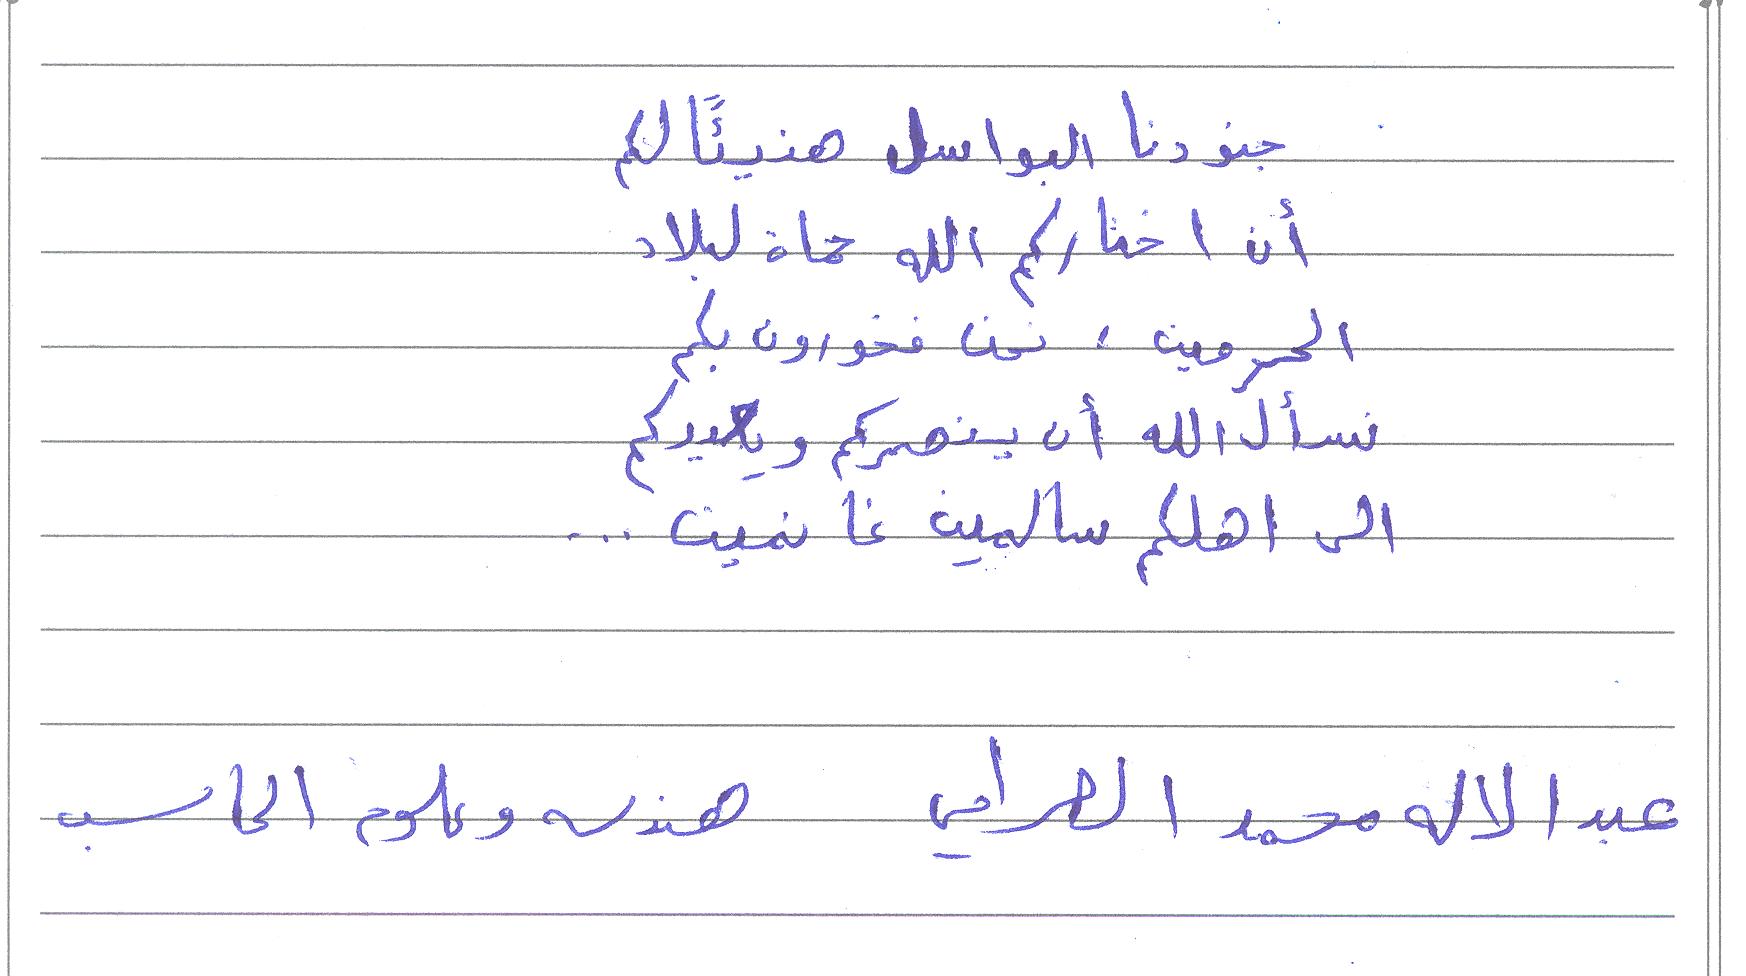 جنودنا البواسل هنيئًا لكم
أن اختاركم الله حماة لبلاد
الحرمين ، نحن فخورون بكم
نسأل الله أن ينصركم ويعيدكم
الى اهلكم سالمين غانمين ...
عبدالاله محمد هندسه وعلوم الحاسب